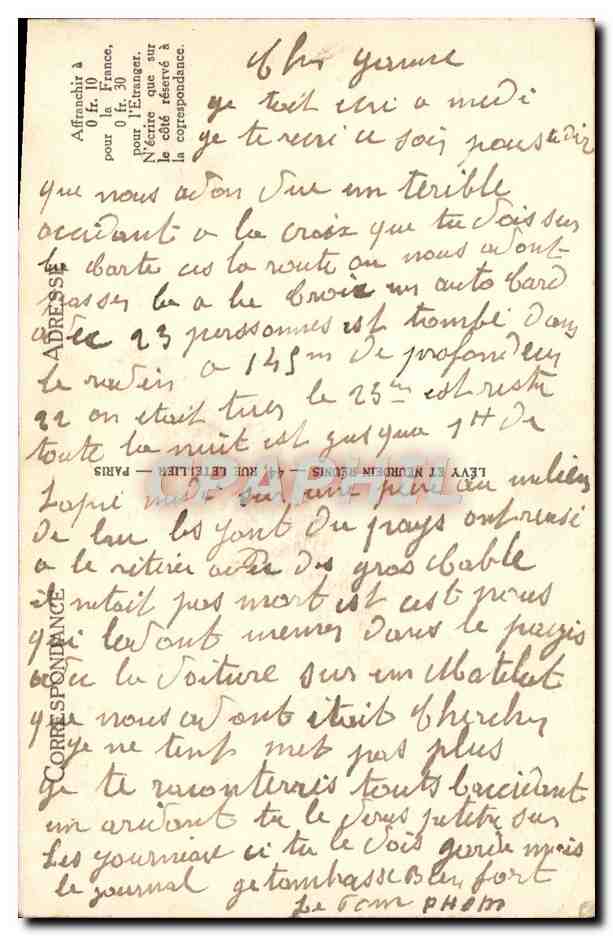 Affranchir à
0 fr. 10
pour la France,
0 fr. 30
pour l'Etranger.
N'écrire que sur
le côté réservé à
la correspondance.
ADRESSE
CORRESPONDANCE
LÉVY ET NEURDEIN RÉUNIS — 44, RUE LETELLIER — PARIS
CPAPHIL
Cher
ge tait ecri a medi
ge te recri ce soir pous te dir
que nous adon due un terible
accidant a la croix que tu dois sur
la carte ces la route ou nous adont
passer la a la Croix un auto Card
adec 23 perssonnes est tombé dans
le radin a 145m de profondeur
22 on était tues le 23me est resté
toute la nuit est gusqua 1H de
Lapre midi sur une piere au milieu
de leau les gant du pays ont reusi
a le retiree adec des gros cable
il netait pas mort est cest nous
qui ladont mener dans le pays
adec la doiture sur un Matelat
que nous adont était cherchez
ge ne tent met pas plus
ge te raconterris touts laccidant
un aridant tu le deras petetre sur
les gourniau ci tu le dois garde mois
le journal getambrasse Bien fort
Le Tom